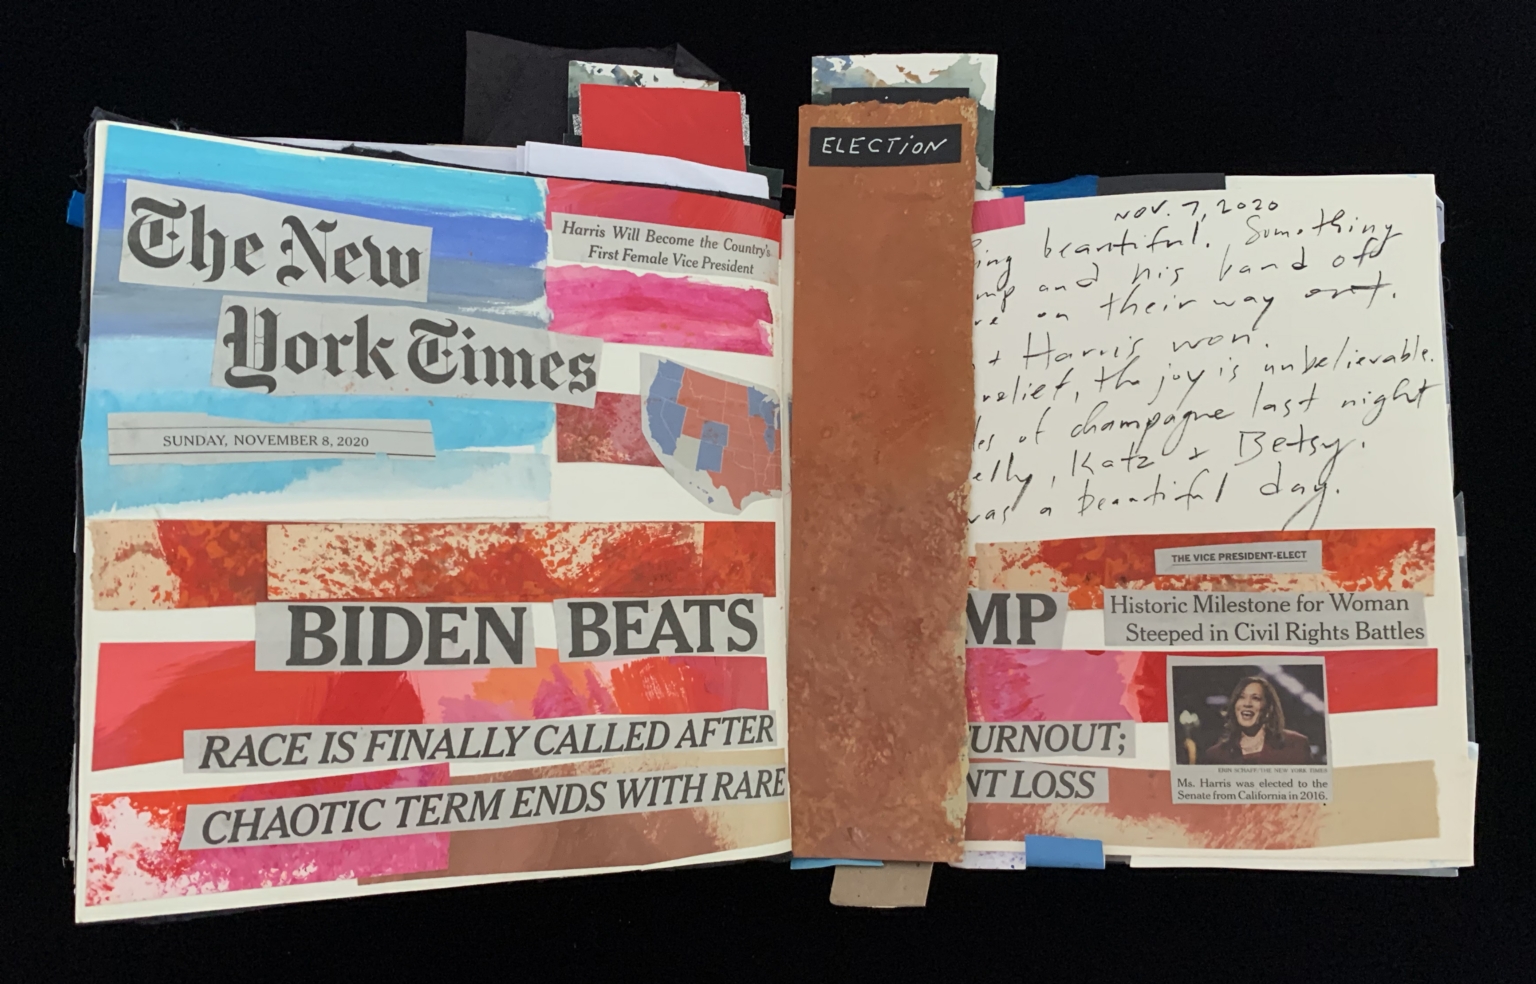 The New
York Times
SUNDAY, NOVEMBER 8, 2020
Harris Will Become the Country's
First Female Vice President
BIDEN BEATS
RACE IS FINALLY CALLED AFTER
CHAOTIC TERM ENDS WITH RARE
ELECTION
NOV. 7, 2020
ing beautiful. Something
mp and his band of
re on their way out.
+ Harris won.
relief, the joy is unbelievable.
les of champagne last night
elly, Katz + Betsy.
was a beautiful day.
THE VICE PRESIDENT-ELECT
MP
Historic Milestone for Woman
Steeped in Civil Rights Battles
URNOUT;
NT LOSS
ERIN SCHAFF/THE NEW YORK TIMES
Ms. Harris was elected to the
Senate from California in 2016.